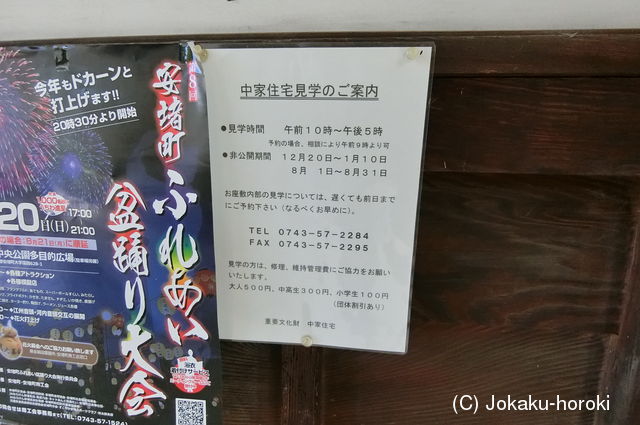 中家住宅見学のご案内
●見学時間 午前10時～午後5時
予約の場合、相談により午前9時より可
●非公開期間 12月20日～1月10日
8月 1日～8月31日
お座敷内部の見学については、遅くても前日までにご予約下さい（なるべくお早めに）。
TEL 0743-57-2284
FAX 0743-57-2295
見学の方は、修理、維持管理費にご協力をお願いいたします。
大人500円、中高生300円、小学生100円
（団体割引あり）
重要文化財 中家住宅
今年もドカーンと
打上げます!!
20時30分より開始
第8回
安堵町
ふれあい
盆踊り大会
20日(日) 17:00
21:00
の場合：8月21日(月)に順延
中央公園多目的広場
～各種アトラクション
～各種模擬店
～江州音頭・河内音頭交互の展開
～花火打上
浴衣
着付けサービス
TEL：0743-57-1524
(C) Jokaku-horoki